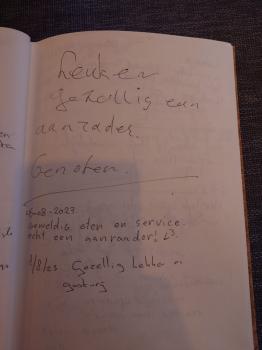 Leuk en
gezellig een
aanrader.
Genoten.
-08-2023.
Geweldig eten en service.
echt een aanrander!
/8/23 Gezellig Lekker